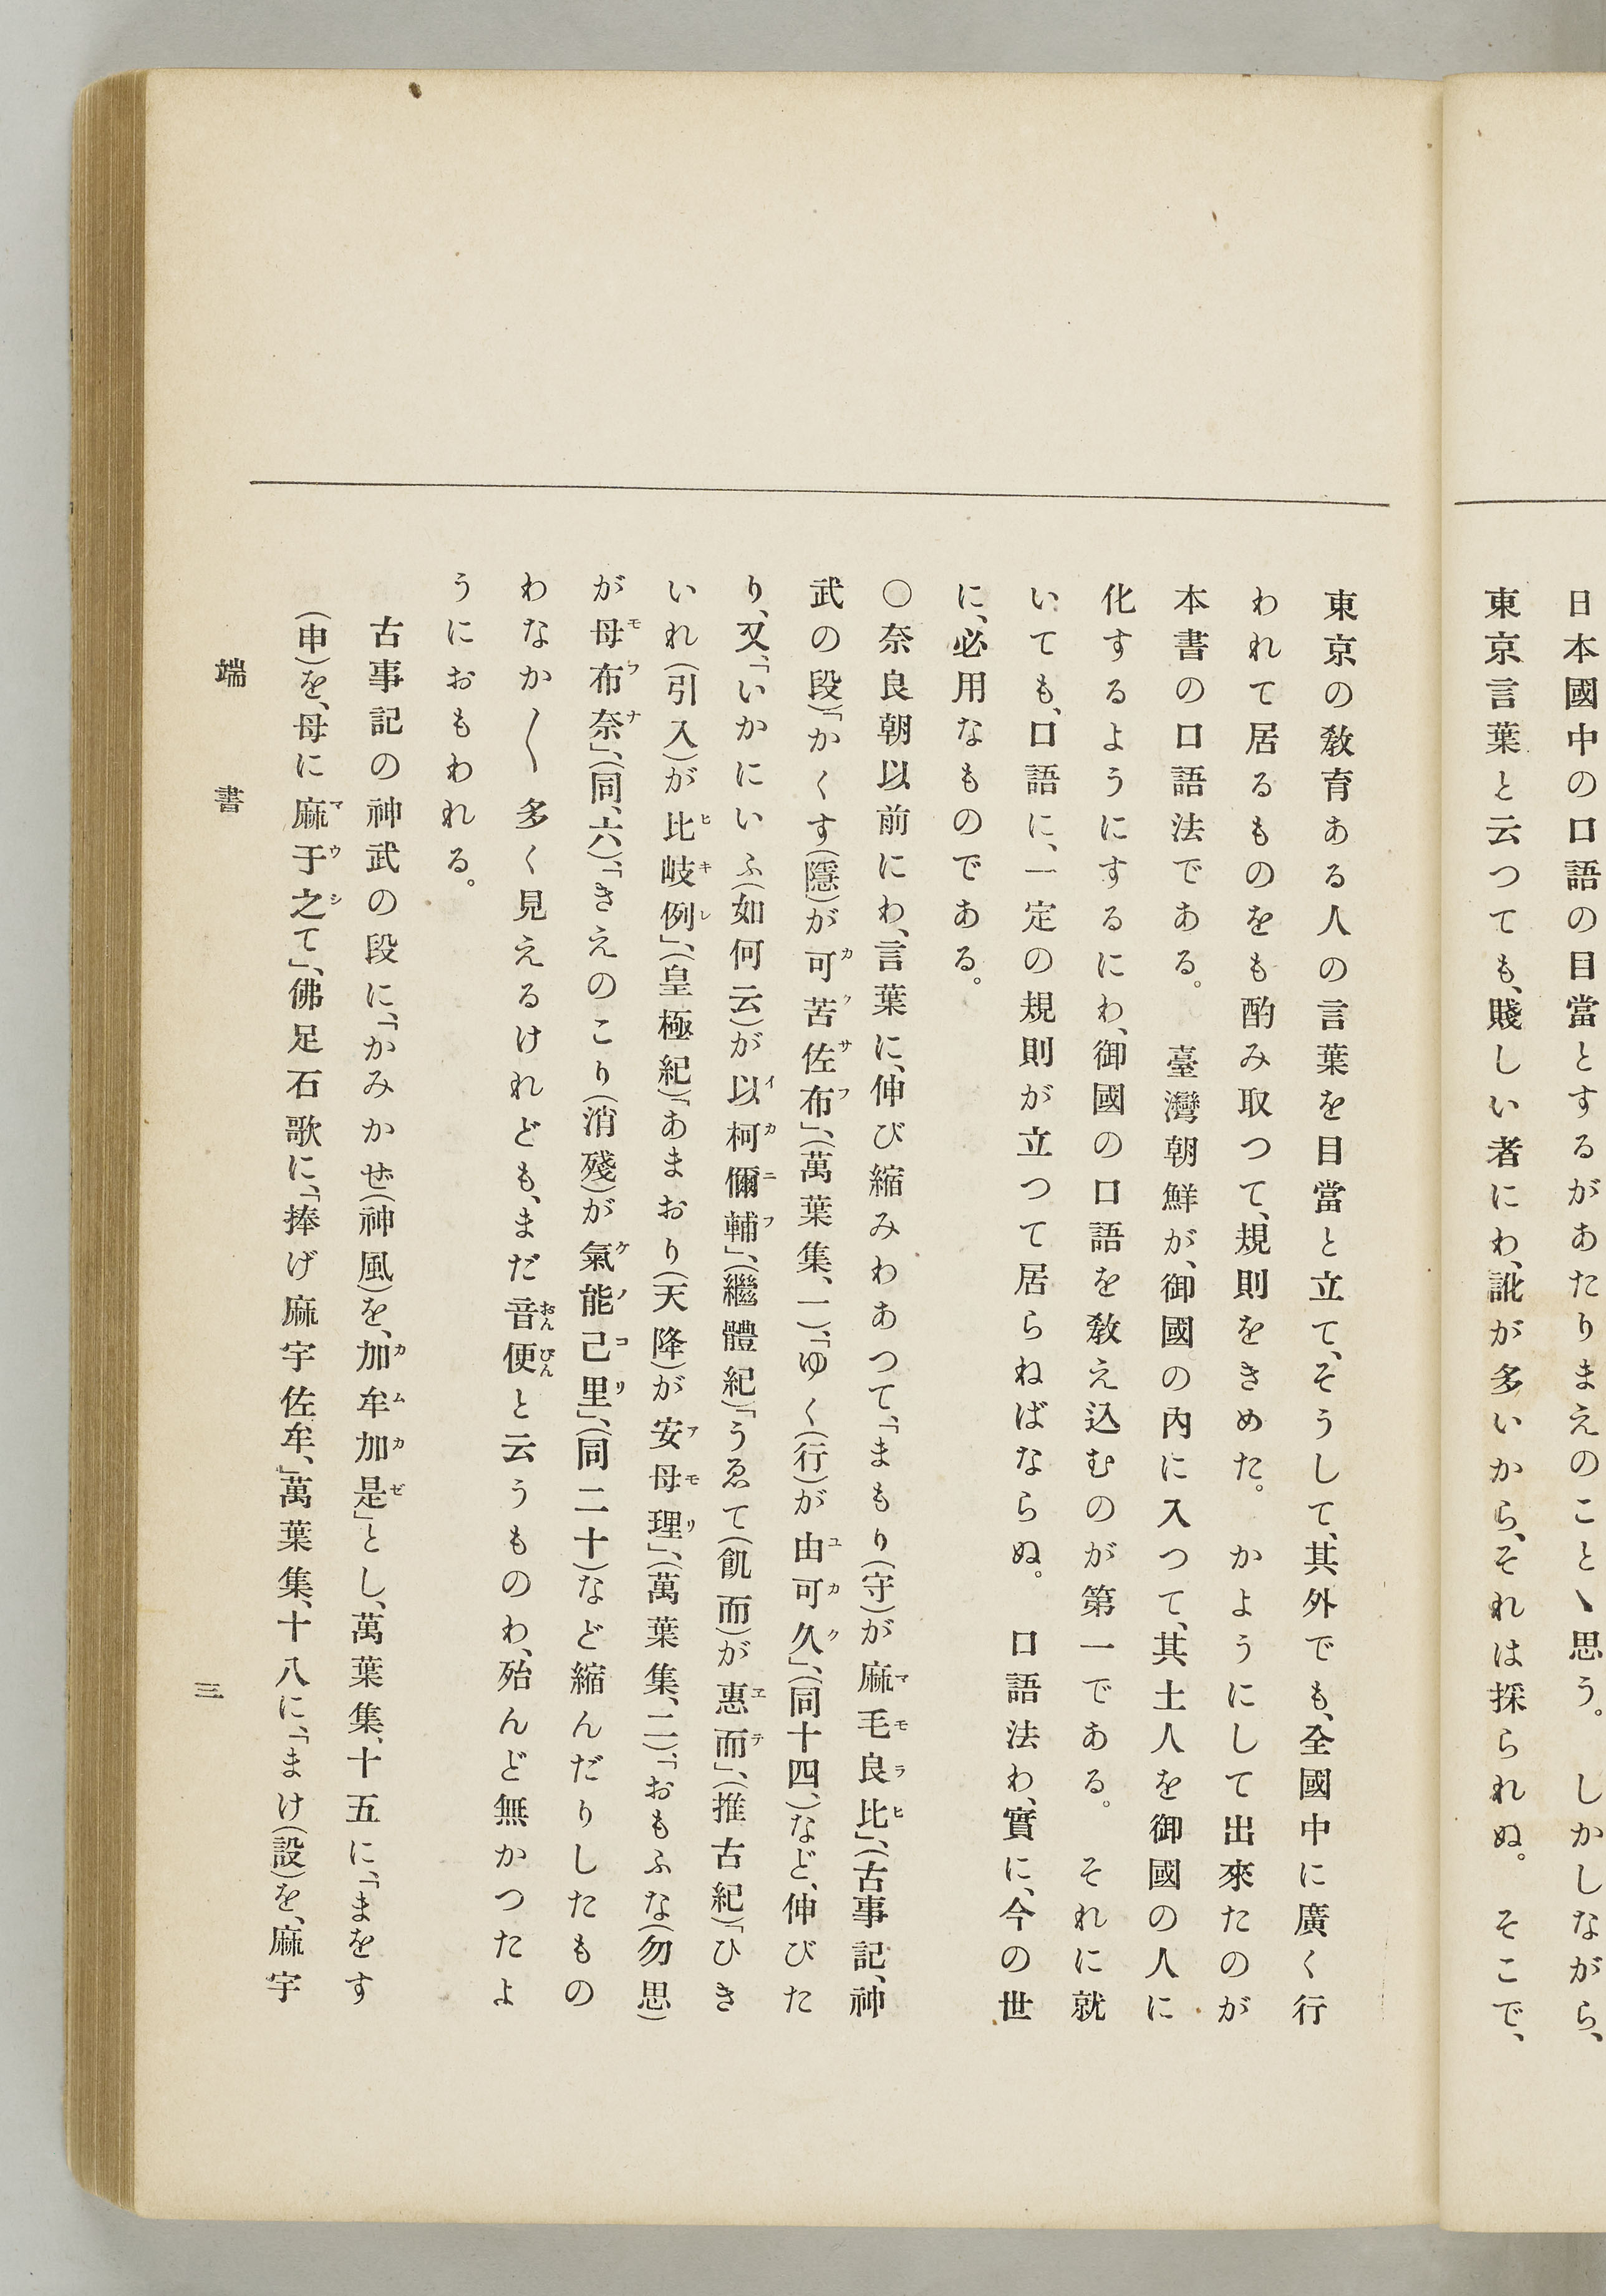 日本國中の口語の目當とするがあたりまえのことゝ思う。　しかしながら、
東京言葉と云つても、賤しい者にわ、訛が多いから、それは採られぬ。　そこで、
東京の敎育ある人の言葉を目當と立て、そうして、其外でも、全國中に廣く行
われて居るものをも酌み取つて、規則をきめた。　かようにして出來たのが
本書の口語法である。　臺灣朝鮮が、御國の內に入つて、其土人を御國の人に
化するようにするにわ、御國の口語を敎え込むのが第一である。　それに就
いても、口語に、一定の規則が立つて居らねばならぬ。　口語法わ、實に、今の世
に、必用なものである。
○奈良朝以前にわ、言葉に、伸び縮みわあつて、「まもり(守)が麻毛良比」、(古事記、神
武の段)「かくす(隱)が可苦佐布」、(萬葉集、一)、「ゆく(行)が由可久」、(同十四、)など、伸びた
り、又、「いかにいふ(如何云)が以柯儞輔」、(繼體紀)「うゑて(飢而)が惠而」、(推古紀)「ひき
いれ(引入)が比岐例」、(皇極紀)「あまおり(天降)が安母理」、(萬葉集、二)、「おもふな(勿思)
が母布奈」、(同、六)、「きえのこり(消殘)が氣能己里」、(同二十)など縮んだりしたもの
わなか〳〵多く見えるけれども、まだ音便と云うものわ、殆んど無かつたよ
うにおもわれる。
古事記の神武の段に、「かみかぜ(神風)を、加牟加是」とし、萬葉集、十五に、「まをす
(申)を、母に麻于之て」、佛足石歌に、「捧げ麻宇佐牟、」萬葉集、十八に、「まけ(設)を、麻宇
端書
三